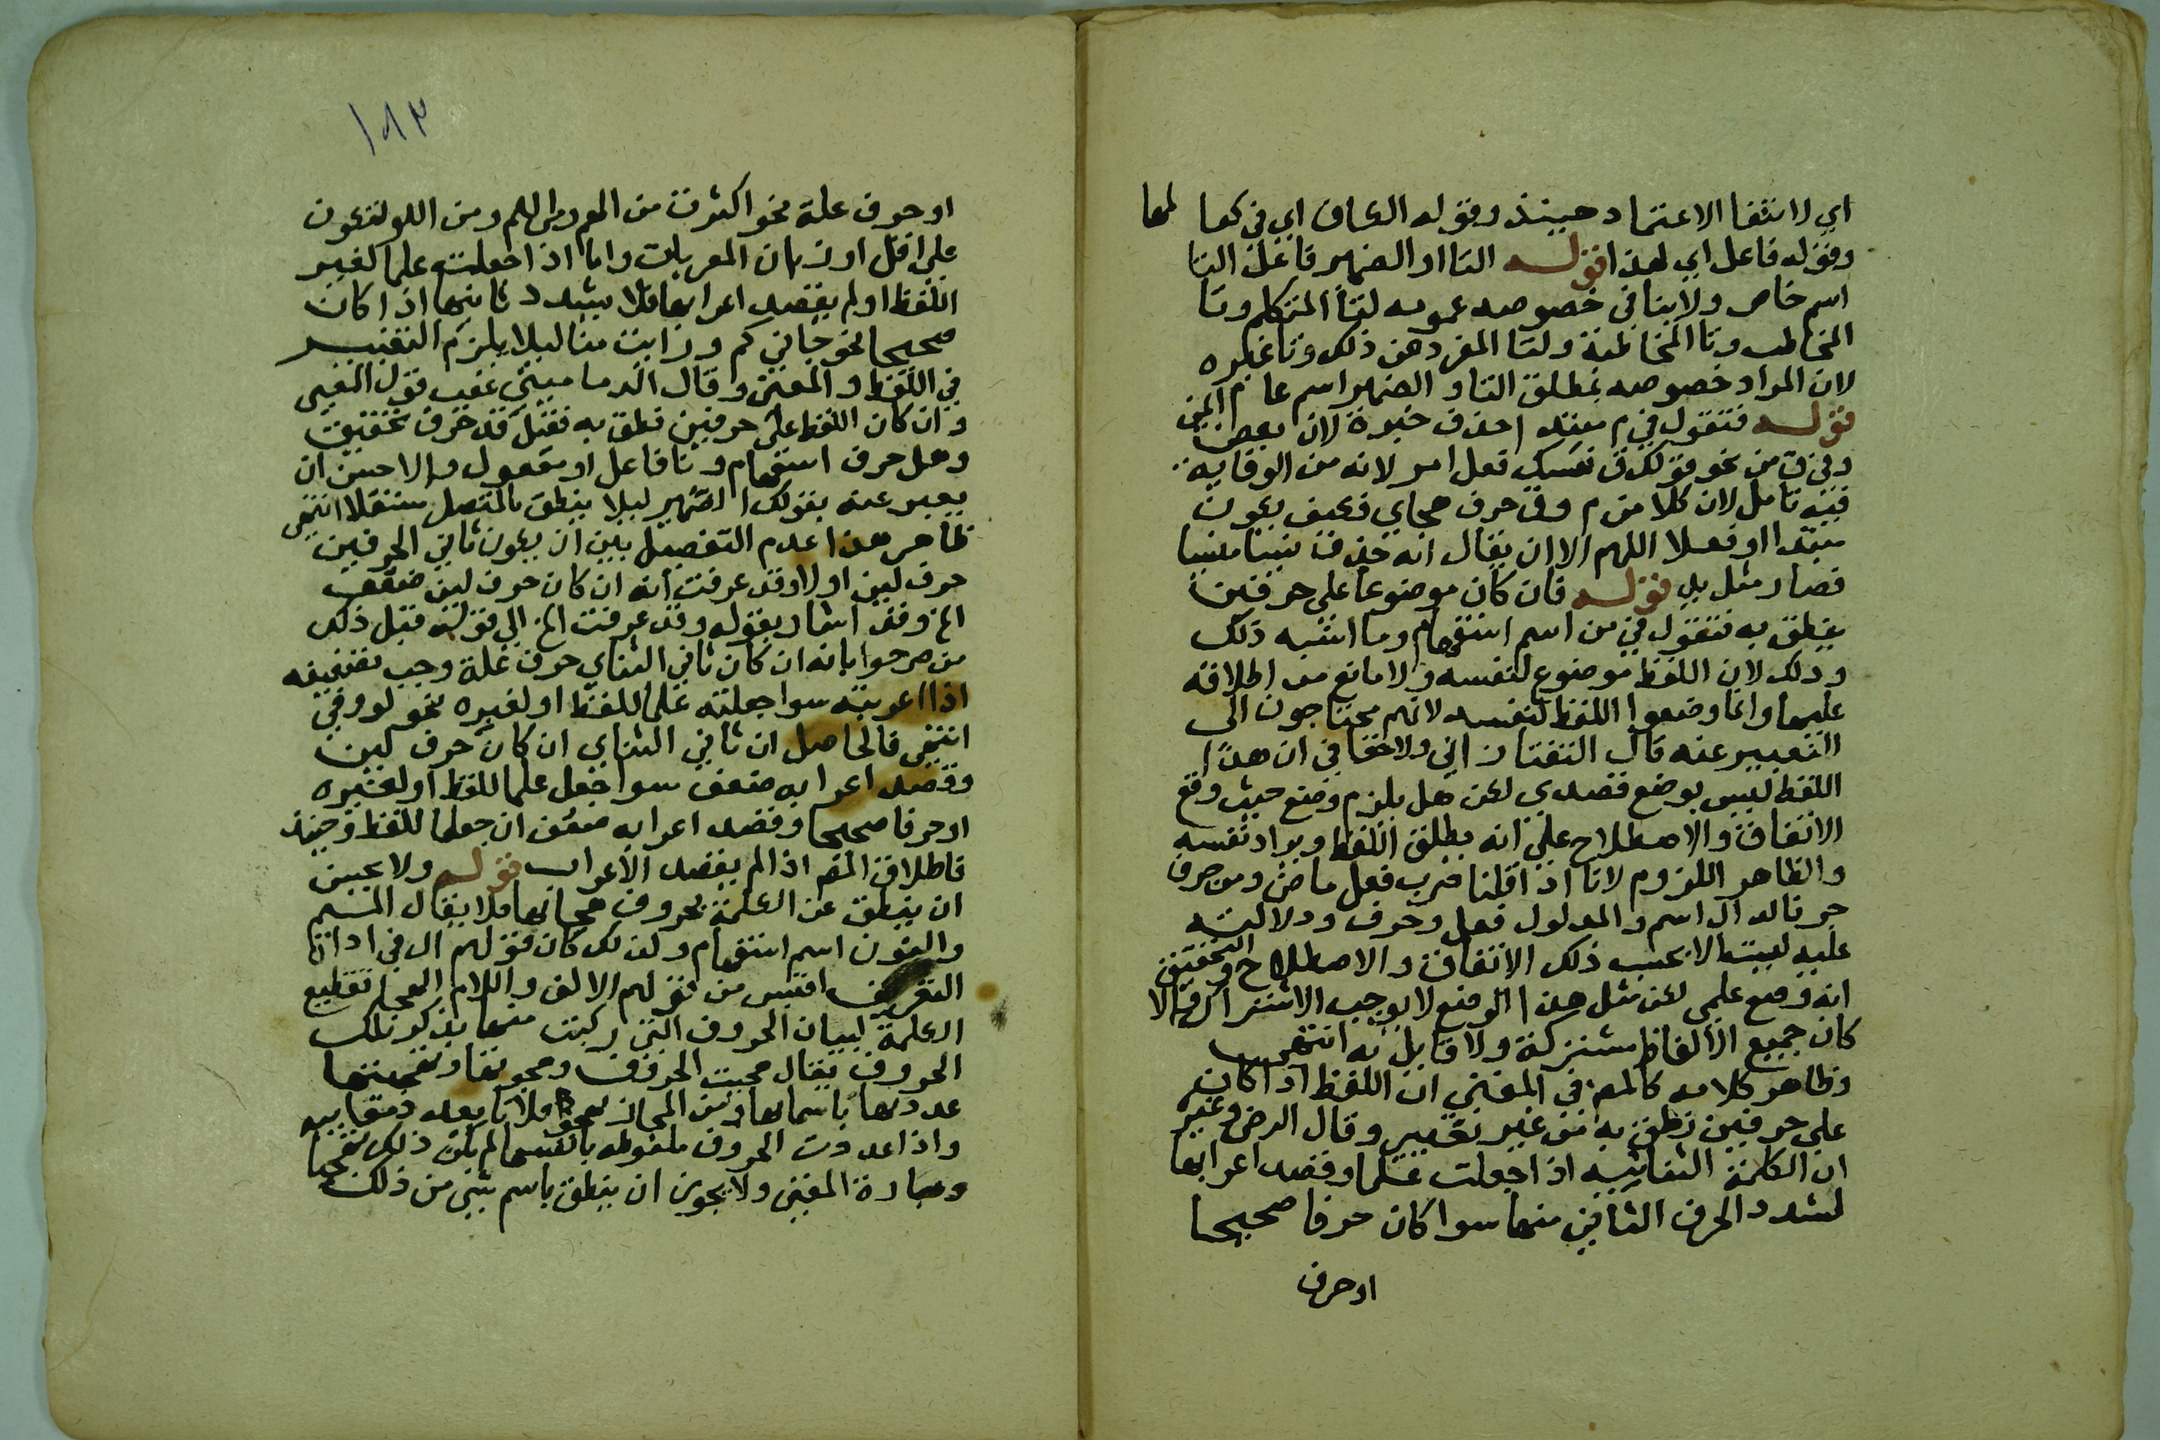 اي لانتفا الاعتماد حينئذ وقوله الكاف اي في كما لها
وقوله فاعل اي لهذا قوله التا او الضمير فاعل التا
اسم خاص ولا ينافي خصوصه عمومه لتا المتكلم وتا
المخاطب وتا المخاطبة ولتا المفرد من ذلك وتا غيره
لان المراد خصوصه بمطلق التا و الضمير اسم عام
قوله فتقول في م مبتدا حذف خبره لان بعض ايمن
وفي ق من نحو قولك ق نفسك فعل امر لانه من الوقاية
فيه تامل لان كلا من م وق حرف هجاي فكيف يكون
مبتدا او فعلا اللهم الا ان يقال انه حذف نسيا منسيا
فصار مثل يد قوله فان كان موضوعا على حرفين
ينطق به فتقول في من اسم استفهام وما اشبه ذلك
وذلك لان اللفظ موضوع لنفسه ولا مانع من اطلاقه
عليها وانما وضعوا اللفظ لنفسه لانهم محتاجون الى
التعبير عنه قال التفتازاني ولا خفا في ان هذا
اللفظ ليس بوضع قصدي لكن هل يلزم وضع حيث وقع
الاتفاق والاصطلاح على انه يطلق اللفظ ويراد نفسه
والظاهر اللزوم لانا اذا قلنا ضرب فعل ماض ومن حرف
جر فالدال اسم والمدلول فعل وحرف ودلالته
عليه ليست الا بحسب ذلك الاتفاق والاصطلاح والتحقيق
انه وضع علمي لكن مثل هذا الوضع لا يوجب الاشتراك والا
كان جميع الالفاظ مشتركة ولا قايل به انتهى
وظاهر كلامه كالمص في المغني ان اللفظ اذا كان
على حرفين نطق به من غير تغيير وقال الرضي وغيره
ان الكلمة الثنائية اذا جعلت علما وقصد اعرابها
لشدد الحرف الثاني منها سوا كان حرفا صحيحا
او حرف
١٨٣
او حرف علة نحو اكثرت من الم ومن اللو لتكون
على اقل اوزان المعربات واما اذا جعلت علما لغير
اللفظ او لم يقصد اعرابها فلا يشدد ثانيها اذا كان
صحيحا نحو جاني كم ورايت منا ليلا يلزم التغيير
في اللفظ والمعنى وقال الدماميني عقب قول المغني
وان كان اللفظ على حرفين نطق به فقيل قد حرف تحقيق
وهل حرف استفهام ونا فاعل او مفعول والاحسن ان
يعبر عنه بقولك الضمير ليلا ينطق بالمتصل مستقلا انتهى
ظاهر هذا عدم التفصيل بين ان يكون ثاني الحرفين
حرف لين اولا وقد عرفت انه ان كان حرف لين ضعف
الخ وقد اشار بقوله وقد عرفت الخ الى قوله قبل ذلك
من صرحوا بانه ان كان ثاني الثناي حرف علة وجب تضعيفه
اذا اعربته سوا جعلته علما للفظ او لغيره نحو لو وفي
انتهى فالحاصل ان ثاني الثناي ان كان حرف لين
وقصد اعرابه ضعف سوا جعل علما للفظ او لغيره
او حرفا صحيحا وقصد اعرابه ضعف ان جعل علما للفظ وحينئذ
فاطلاق المص اذا لم يقصد الاعراب قوله ولا يحسن
ان ينطق عن الكلمة بحروف هجائها فلا يقال الميم
والنون اسم استفهام ولذلك كان قولهم ال في اداة
التعريف اقيس من قولهم الالف واللام الهجا تقطيع
الكلمة لبيان الحروف التي ركبت منها بذكر تلك
الحروف يقال هجيت الحروف وهجوتها وتهجيتها
عددتها باسمائها ومن المجاز يهجو فلانا يعدد معايبه
واذا عددت الحروف ملفوظه بانفسها لم يكن ذلك تهجيا
وعبارة المغني ولا يجوز ان ينطق باسم شي من ذلك